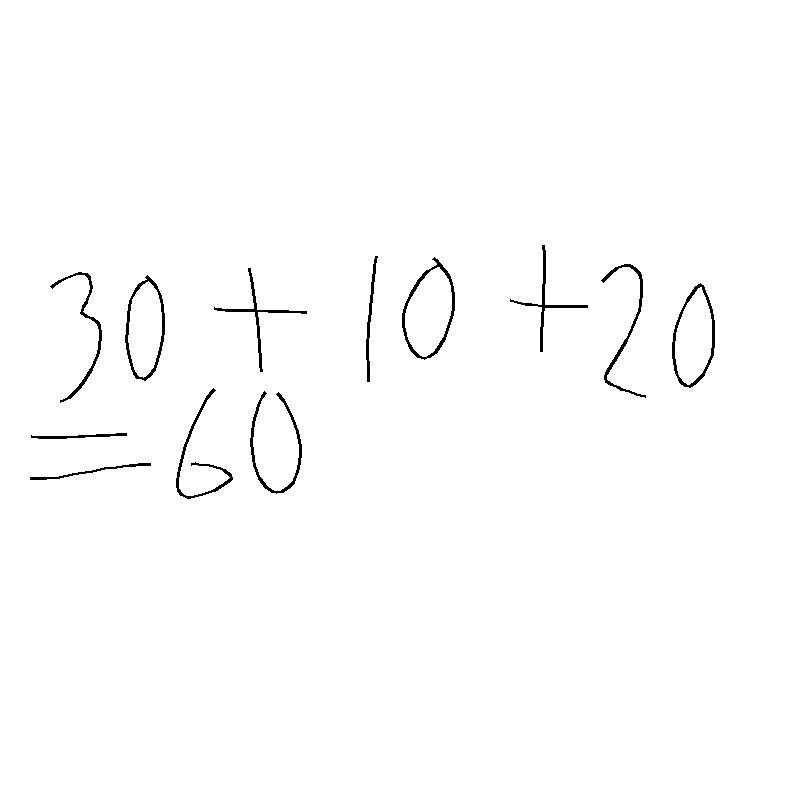 30 + 10 + 20
= 60